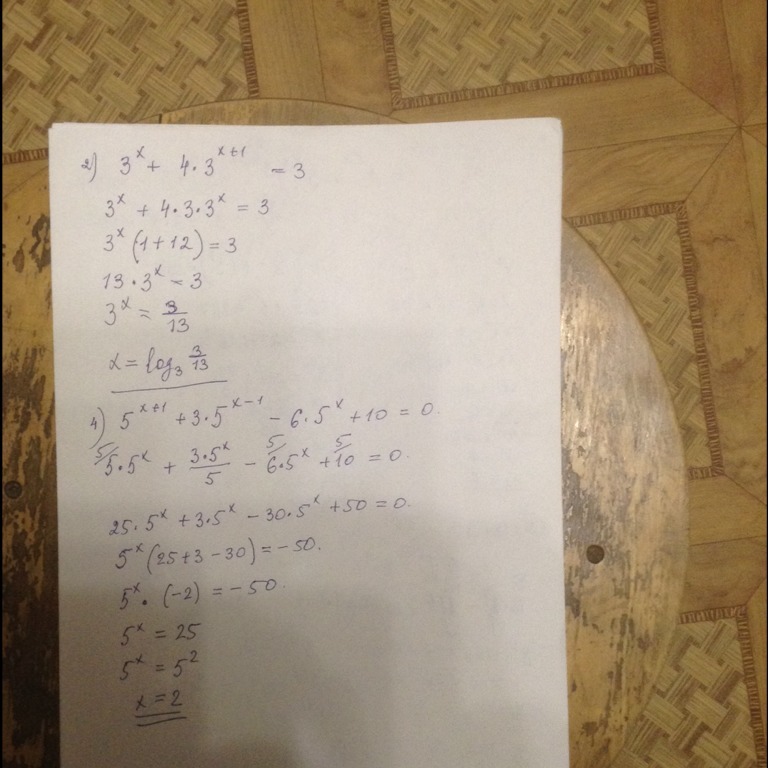 2) 3^x + 4·3^(x+1) = 3
3^x + 4·3·3^x = 3
3^x (1+12) = 3
13·3^x = 3
3^x = 3/13
x = log₃ 3/13
4) 5^(x+1) + 3·5^(x-1) - 6·5^x + 10 = 0.
5/ 5·5^x + 3·5^x/5 - 5/ 6·5^x + 5/ 10 = 0.
25·5^x + 3·5^x - 30·5^x + 50 = 0.
5^x (25+3-30) = -50.
5^x · (-2) = -50.
5^x = 25
5^x = 5^2
x = 2